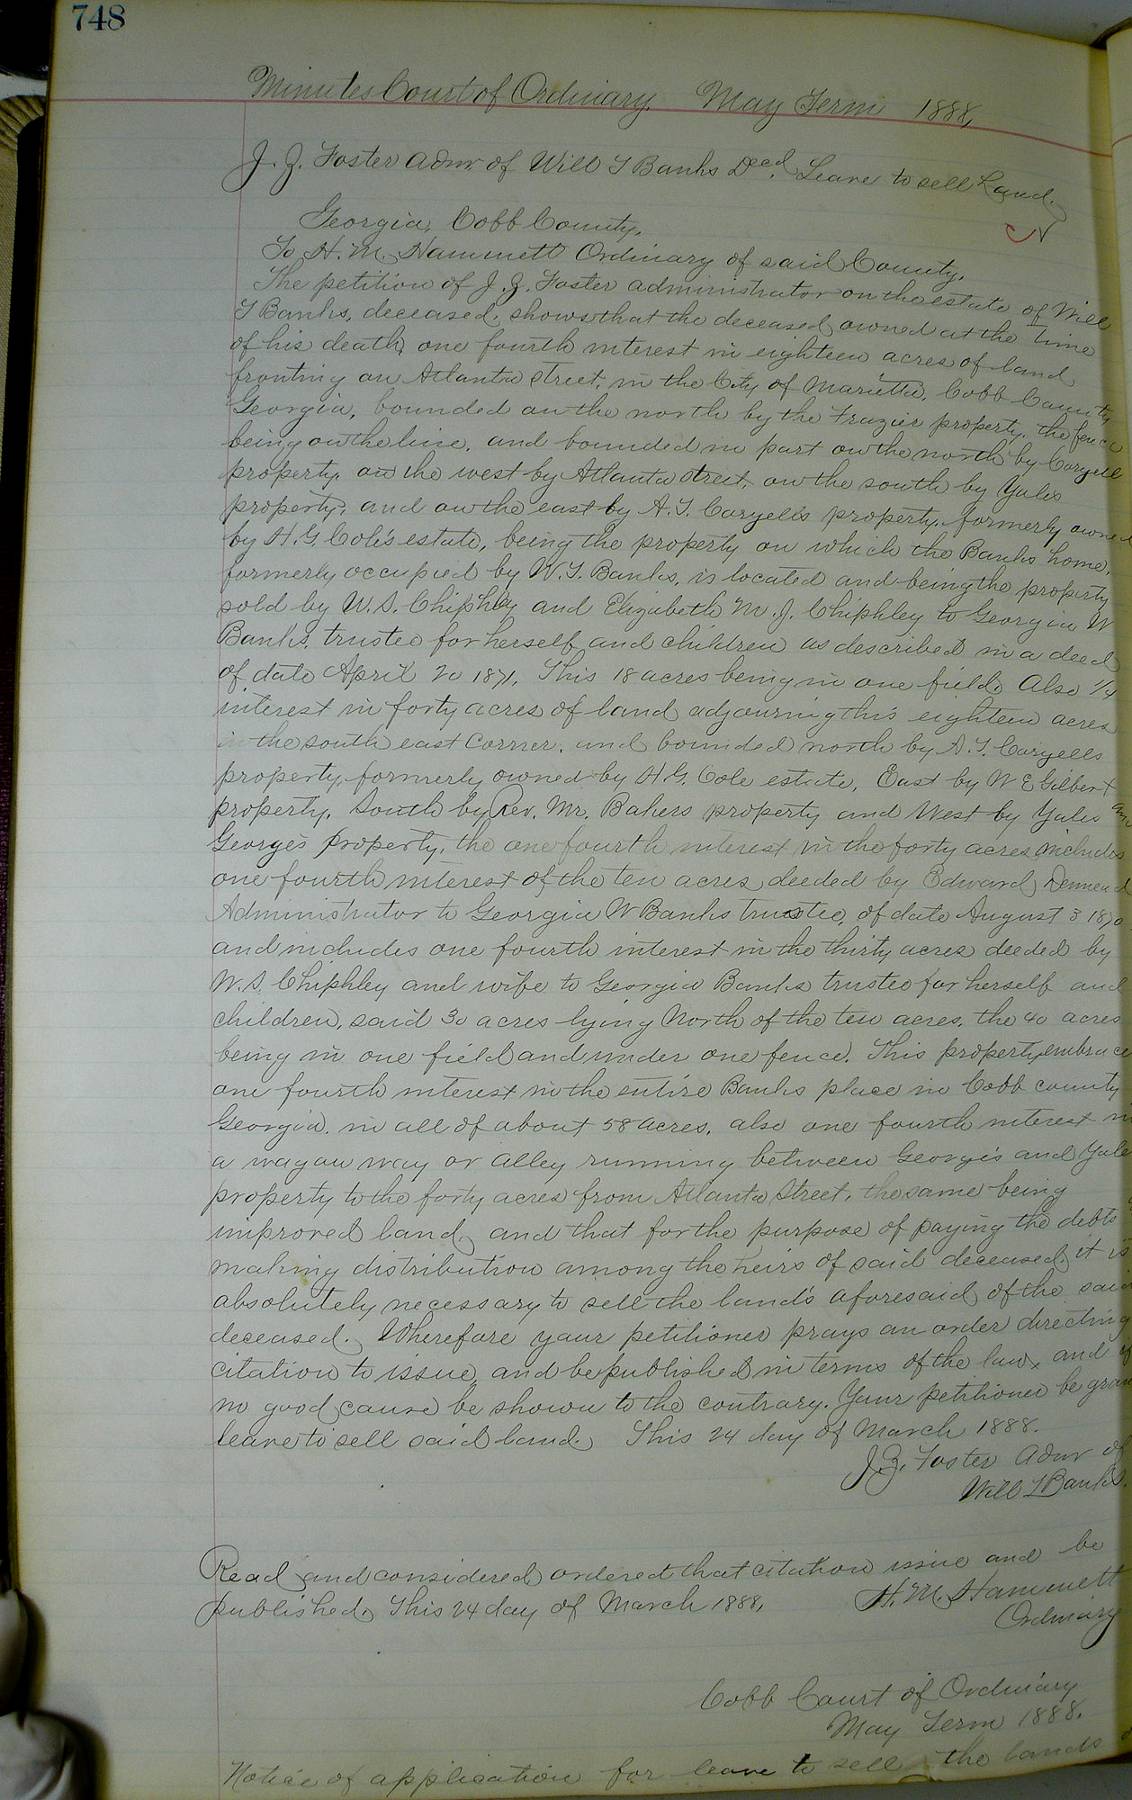 748
Minutes Court of Ordinary. May Term 1888,
J. Z. Foster Admr. of Will T Banks Decd. Leave to sell Land.
Georgia, Cobb County.
To H. M. Hammett Ordinary of said County.
The petition of J. Z. Foster administrator on the estate of Will
T Banks, deceased, shows that the deceased owned at the time
of his death one fourth interest in eighteen acres of land
fronting on Atlanta street, in the City of Marietta, Cobb County
Georgia, bounded on the north by the Frazier property, the fence
being on the line, and bounded in part on the north by Coryell
property, on the west by Atlanta street, on the south by Yules
property, and on the east by A. T. Coryell's property, formerly owned
by H. G. Cole's estate, being the property on which the Banks home,
formerly occupied by W. T. Banks, is located and being the property
sold by W. S. Chiphley and Elizabeth M. J. Chiphley to Georgia W
Banks, trustee for herself and children as described in a deed
of date April 20 1871. This 18 acres being in one field. Also 1/4
interest in forty acres of land adjourning this eighteen acres
in the south east corner, and bounded north by A. T. Coryells
property, formerly owned by H. G. Cole estate, East by W E Gilbert
property, South by Rev. Mr. Bakers property and West by Yules and
George's property, the one fourth interest in the forty acres includes
one fourth interest of the ten acres deeded by Edward Denmead
Administrator to Georgia W Banks trustee, of date August 3 1870
and includes one fourth interest in the thirty acres deeded by
W. S. Chiphley and wife to Georgia Banks trustee for herself and
children, said 30 acres lying North of the ten acres, the 40 acres
being in one field and under one fence. This property embrace
one fourth interest in the entire Banks place in Cobb county
Georgia, in all of about 58 acres, also one fourth interest in
a wagon way or alley running between George's and Yule
property to the forty acres from Atlanta Street, the same being
improved land, and that for the purpose of paying the debts
making distribution among the heirs of said deceased, it is
absolutely necessary to sell the land's aforesaid of the said
deceased. Wherefore your petitioner prays an order directing
citation to issue, and be published in terms of the law, and if
no good cause be shown to the contrary. Your petitioner be gran
leave to sell said land. This 24 day of March 1888.
J. Z. Foster Admr of
Will T Banks.
Read and considered ordered that citation issue and be
published. This 24 day of March 1888. H. M. Hammett
Ordinary
Cobb Court of Ordinary
May Term 1888.
Notice of application for leave to sell the lands